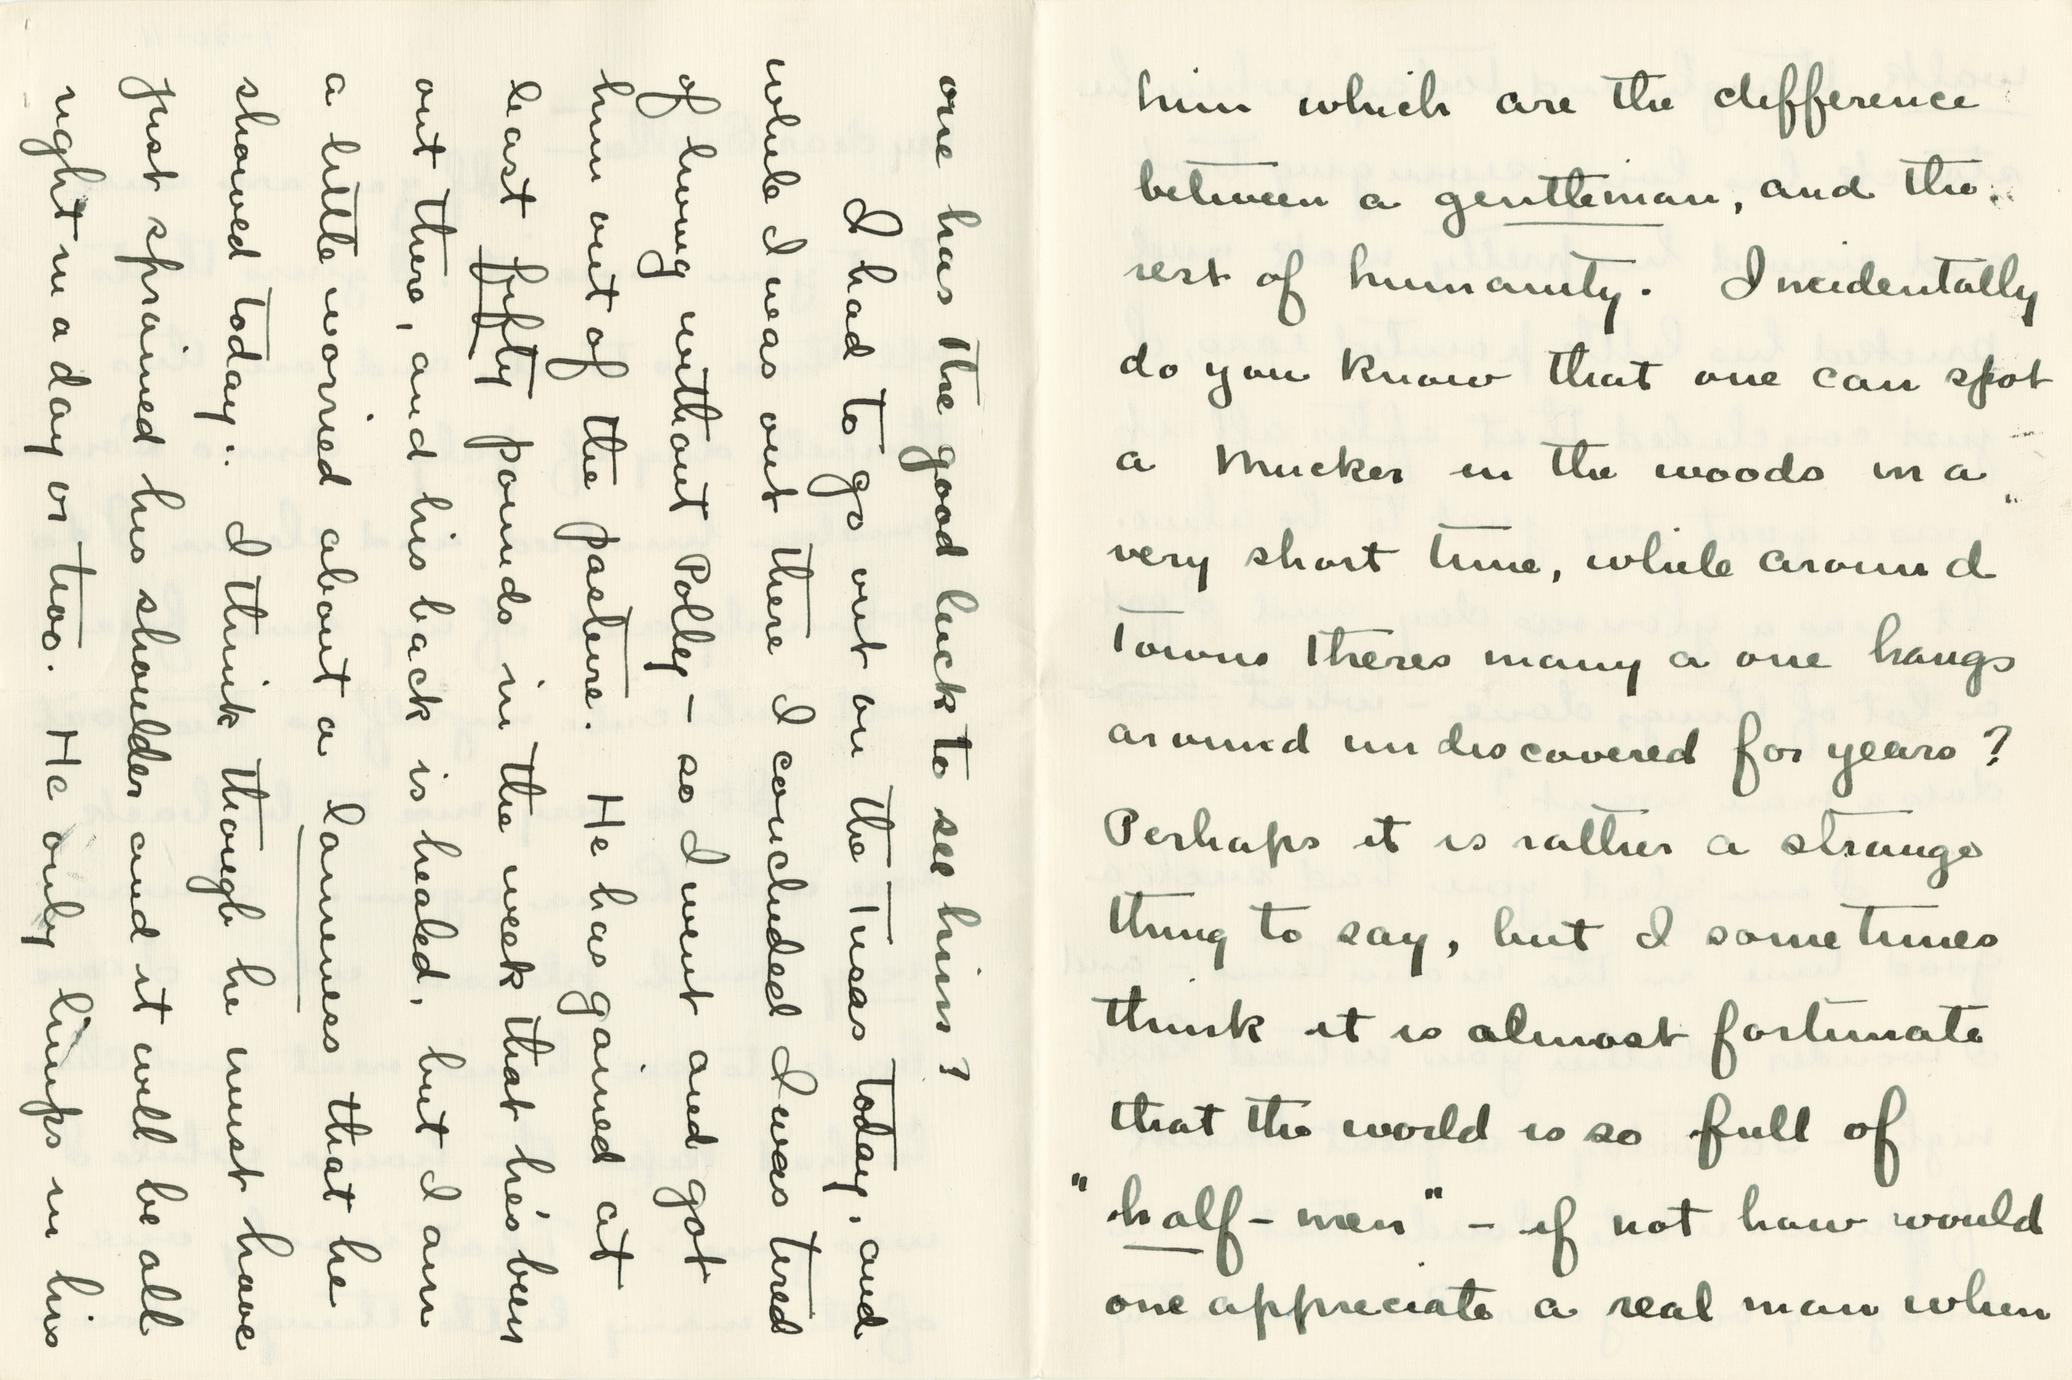 him which are the difference
between a gentleman, and the
rest of humanity. Incidentally
do you know that one can spot
a mucker in the woods in a
very short time, while around
towns theres many a one hangs
around undiscovered for years?
Perhaps it is rather a strange
thing to say, but I sometimes
think it is almost fortunate
that the world is so full of
"half-men" - if not how would
one appreciate a real man when
one has the good luck to see him?
I had to go out on the Tusas today, and
while I was out there I concluded I was tired
of living without Polley - so I went and got
him out of the pasture. He has gained at
least fifty pounds in the week that he's been
out there, and his back is healed, but I am
a little worried about a lameness that he
showed today. I think though he must have
just sprained his shoulder and it will be all
right in a day or two. He only limps in his